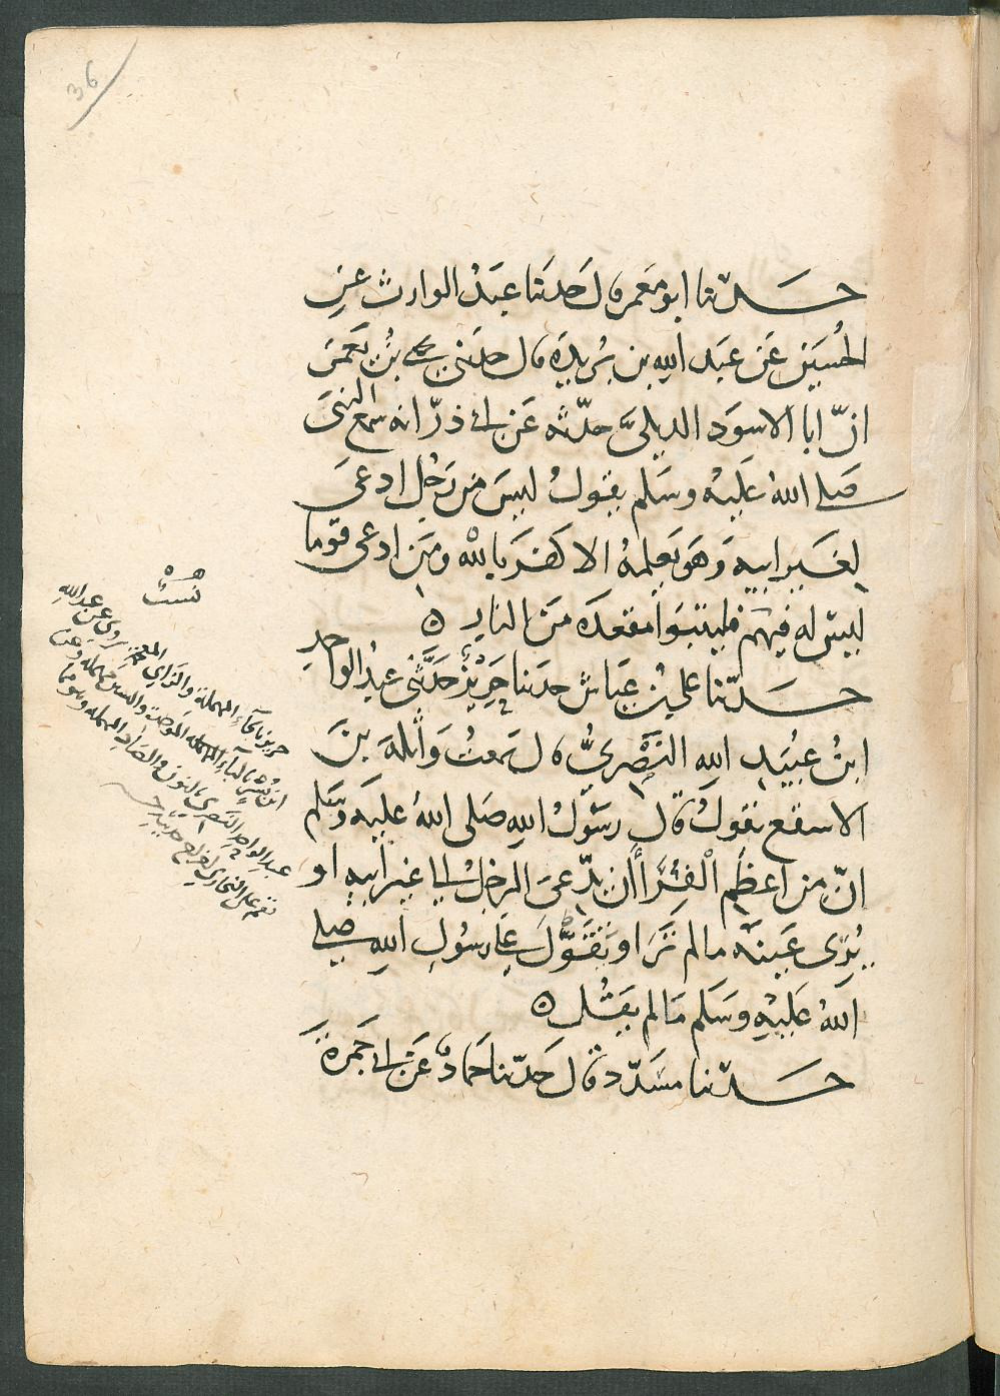 36
حدثنا ابو معمر قال حدثنا عبد الوارث عن
الحسين عن عبد الله بن بريدة قال حدثني يحيى بن يعمر
انّ ابا الاسود الديلي حدّثه عن ابي ذرّ انه سمع النبي
صلى الله عليه وسلم يقول ليس من رجل ادعى
لغير ابيه وهو يعلمه الا كفر بالله ومن ادعى قوما
ليس له فيهم فليتبوا مقعده من النار ه
حدّثنا علي بن عياش حدثنا حريز حدّثني عبد الواحد
ابن عبيد الله النصريّ قال سمعت واثلة بن
الاسقع يقول قال رسول الله صلى الله عليه وسلم
انّ من اعظم الفرا أن يدّعى الرجل الى غير ابيه او
يُرى عينه ما لم تر او تقوّل على رسول الله صلى
الله عليه وسلم ما لم يقل ه
حدّثنا مسدّد قال حدّثنا حمادٌ عن ابي جمرة
حريز بالحاء المهملة والزاي المعجمة يروي عن عبد الله
ابن بسر بالباء الموحدة والسين مهملة وعن
عبد الواحد النصري بالنون والصاد المهملة